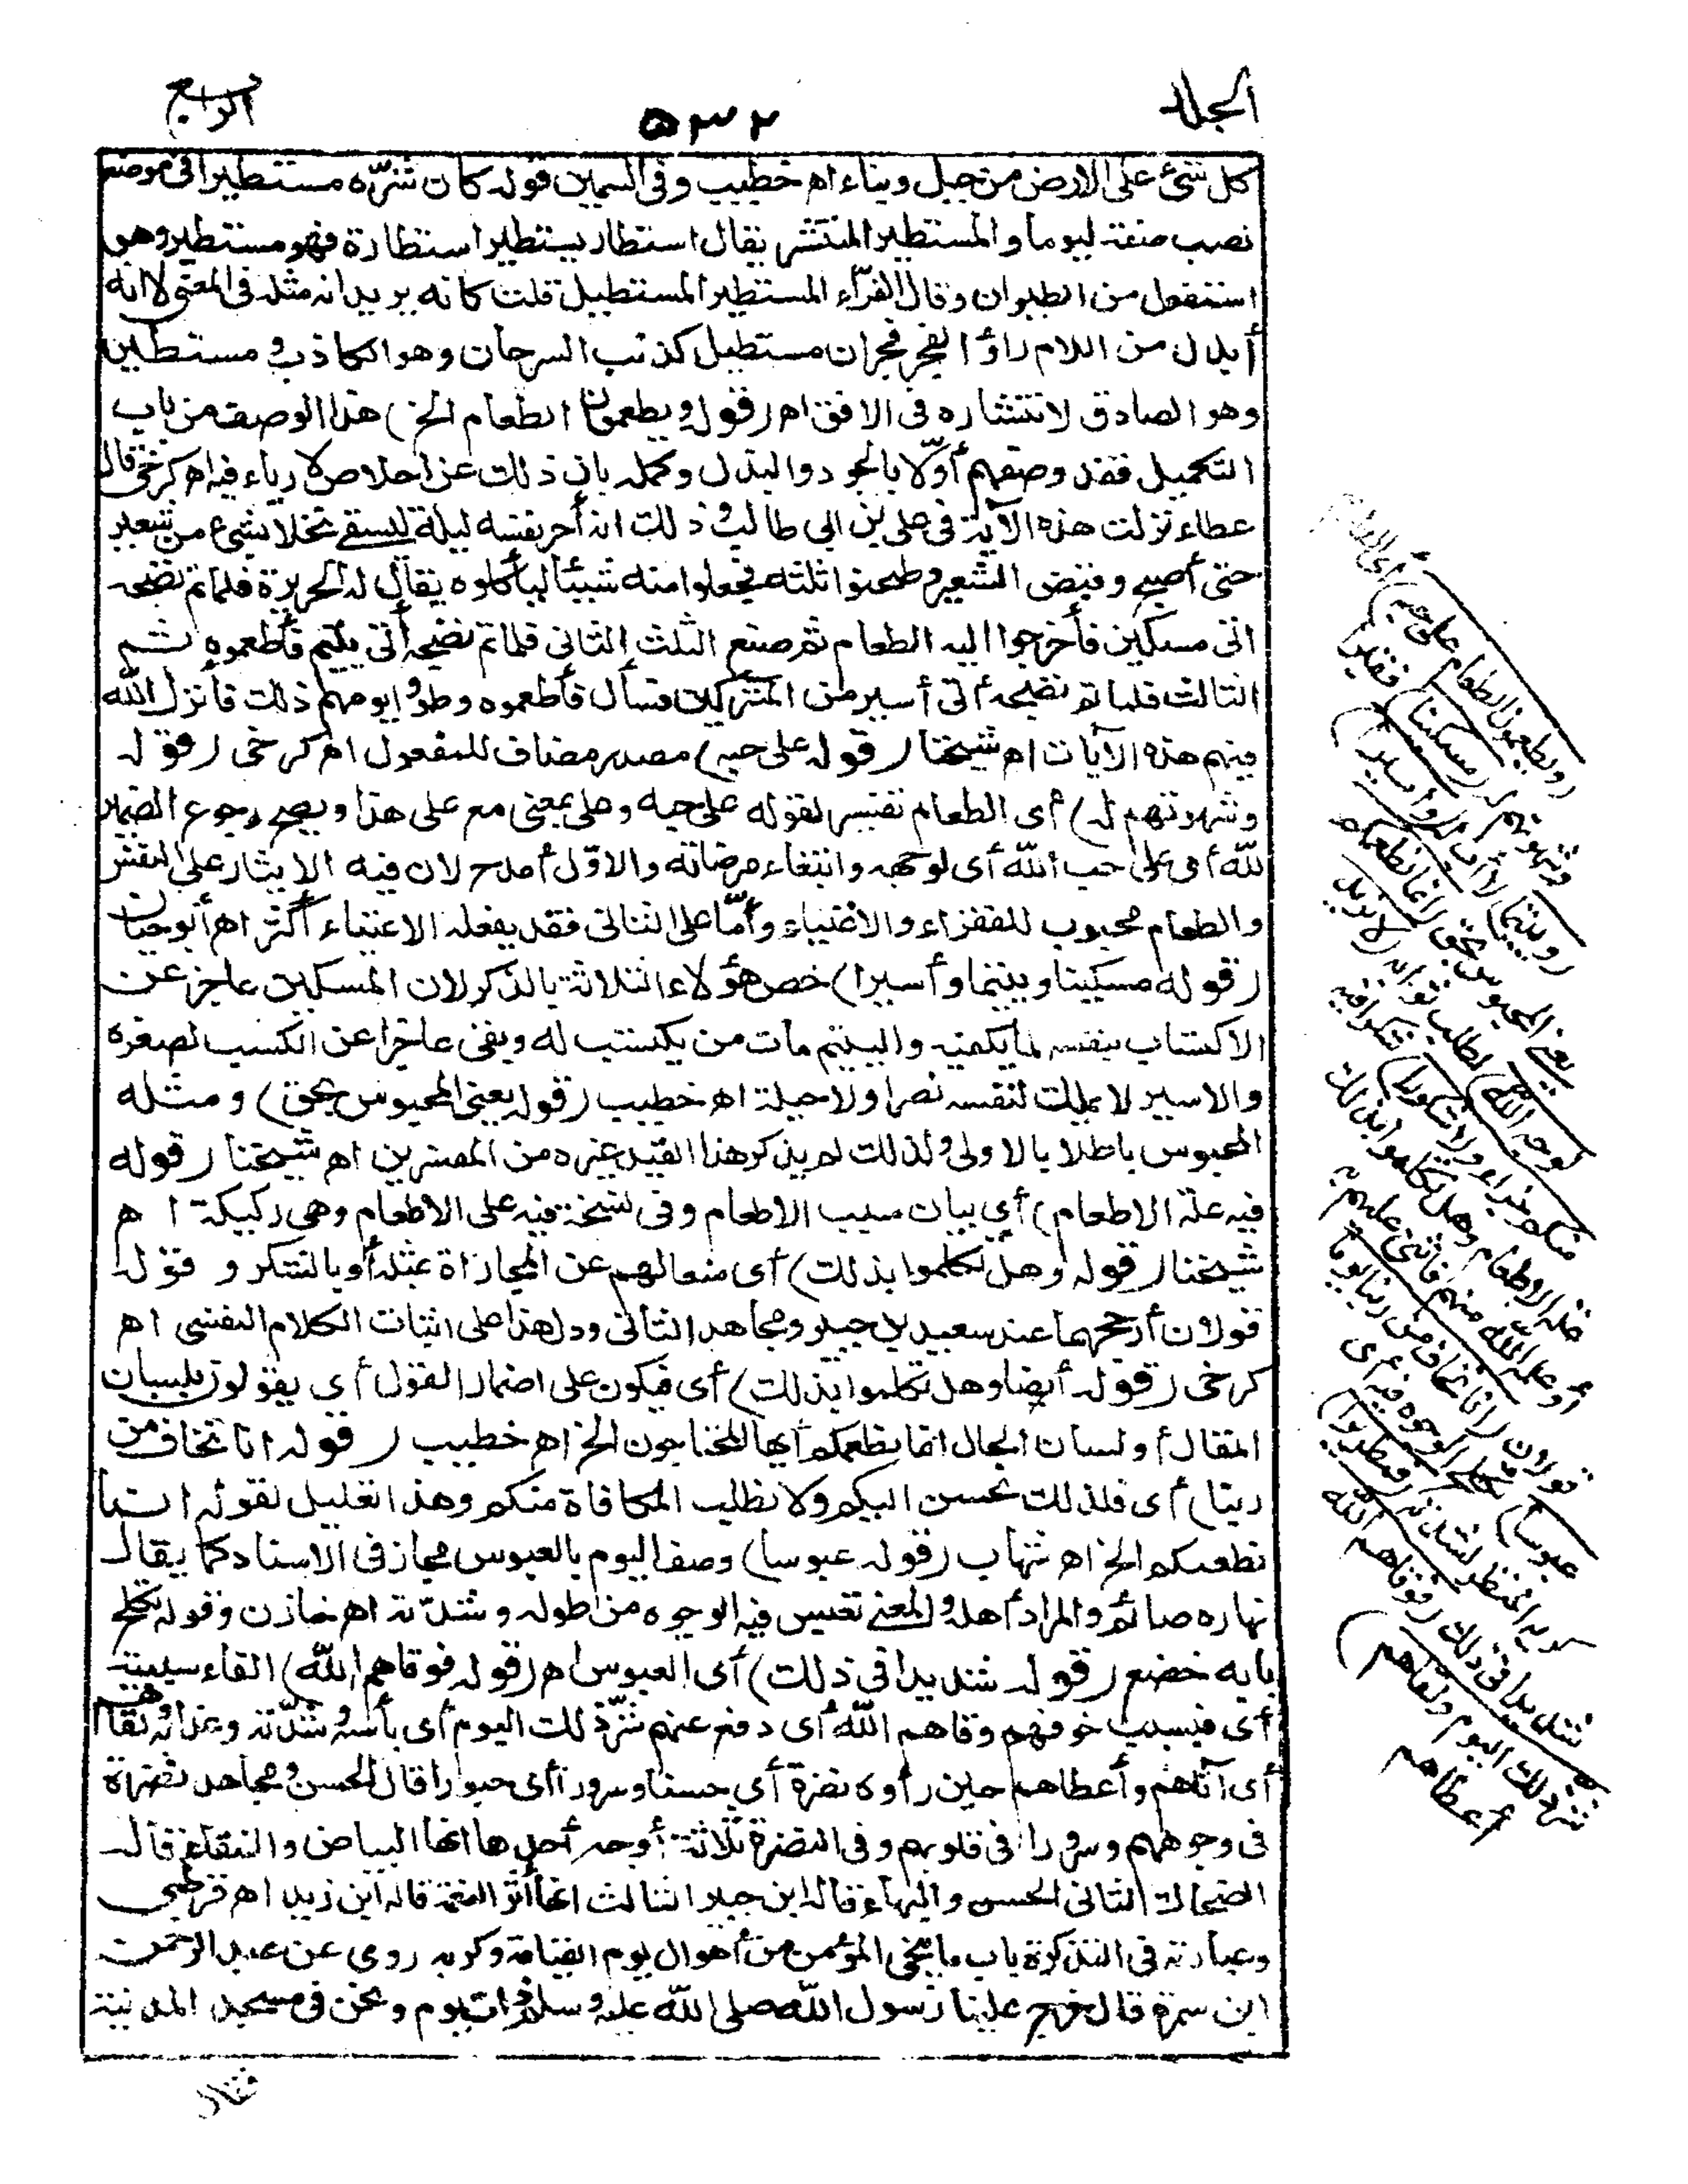 المجلد
٥٣٢
الرابع
كل شئ على الارض من جبل وبناء اه خطيب وفى السمين قوله كان شرّه مستطيرا فى موضع
نصب صفة ليوما والمستطير المنتشر يقال استطار يستطير استطارة فهو مستطير وهو
استفعل من الطيران وقال الفرّاء المستطير المستطيل قلت كانه يريد انه مثله فى المعنى لا انه
أبدل من اللام راؤ الفجر فجران مستطيل كذنب السرحان وهو الكاذب و مستطير
وهو الصادق لانتشاره فى الافق اه (قوله ويطعمون الطعام الخ) هذا الوصف من باب
التكميل فقد وصفهم أوّلا بالجود والبذل وكمله بان ذلك عن اخلاص لا رياء فيه اه كرخى قال
عطاء نزلت هذه الآية فى على بن ابى طالب وذلك انه أجر نفسه ليلة ليسقى نخلا بشئ من شعير
حتى أصبح وقبض الشعير وطحنوا ثلثه فجعلوا منه شيئا ليأكلوه يقال له الحريرة فلما تم نضجه
اتى مسكين فأخرجوا اليه الطعام ثم صنع الثلث الثانى فلما تم نضجه أتى يتيم فأطعموه ثم
الثالث فلما تم نضجه أتى أسير من المشركين فسأل فأطعموه وطووا يومهم ذلك فأنزل الله
فيهم هذه الآيات اه شيخنا (قوله على حبه) مصدر مضاف للمفعول اه كرخى (قوله
وشهوتهم له) أى الطعام تفسير لقوله على حبه وعلى بمعنى مع على هذا ويصح رجوع الضمير
لله أى على حب الله أى لوجهه وابتغاء مرضاته والاوّل أمدح لان فيه الايثار على النفس
والطعام محبوب للفقراء والاغنياء وأمّا على الثانى فقد يفعله الاغنياء أكثر اه أبو حيان
(قوله مسكينا ويتيما وأسيرا) خص هؤلاء الثلاثة بالذكر لان المسكين عاجز عن
الاكتساب بنفسه لما يكفيه واليتيم مات من يكتسب له وبقى عاجزا عن الكسب لصغره
والاسير لا يملك لنفسه نصرا ولا حيلة اه خطيب (قوله يعنى المحبوس بحق) ومثله
المحبوس باطلا بالاولى ولذلك لم يذكر هذا القيد غيره من المفسرين اه شيخنا (قوله
فيه علة الاطعام) أي بيان سبب الاطعام وفى نسخة فيه على الاطعام وهى ركيكة ا ه
شيخنا (قوله وهل تكلموا بذلك) أى منعا لهم عن المجازاة بمثله أو بالشكر و قوله
قولان أرجحهما عند سعيد بن جبير ومجاهد الثانى ودل هذا على اثبات الكلام النفسى اه
كرخى (قوله أيضا وهل تكلموا بذلك) أى فيكون على اضمار القول أى يقولون بلسان
المقال أو لسان الحال انما نطعمكم أيها المحتاجون الخ اه خطيب (قوله انا نخاف من
ربنا) أى فلذلك نحسن اليكم ولا نطلب المكافاة منكم وهذا تعليل لقوله انما
نطعمكم الخ اه شهاب (قوله عبوسا) وصف اليوم بالعبوس مجاز فى الاسناد كما يقال
نهاره صائم والمراد أهله والمعنى تعبس فيه الوجوه من طوله وشدّته اه خازن وقوله تكلح
بابه خضع (قوله شديدا فى ذلك) أى العبوس اه (قوله فوقاهم الله) الفاء سببية
أى فبسبب خوفهم وقاهم الله أى دفع عنهم شرّ ذلك اليوم أى بأسه وشدّته وعذابه ولقاهم
أى آتاهم وأعطاهم حين رأوه نضرة أي حسنا وسرورا أى حبورا قال الحسن ومجاهد نضرة
فى وجوههم وسرورا فى قلوبهم وفى النضرة ثلاثة أوجه أحدها انها البياض والنقاء قاله
الضحاك الثانى الحسن والبهاء قاله ابن جبير الثالث انها أثر النعمة قاله ابن زيد اه قرطبى
وعبارته فى التذكرة باب ما ينجى المؤمن من أهوال يوم القيامة وكربه روى عن عبد الرحمن
ابن سمرة قال خرج علينا رسول الله صلى الله عليه وسلم ذات يوم ونحن فى مسجد المدينة
فقال
(ويطعمون الطعام على حبه) أى الطعام
وشهوتهم له (مسكينا) فقيرا
(ويتيما) لا أب له (وأسيرا)
يعنى المحبوس بحق (انما نطعمكم
لوجه الله) لطلب ثوابه (لا نريد
منكم جزاء ولا شكورا) شكرا فيه
علة الاطعام وهل تكلموا بذلك
أو علمه الله منهم فأثنى عليهم به
قولان (انا نخاف من ربنا يوما
عبوسا) تكلح الوجوه فيه أى
كريه المنظر لشدته (قمطريرا)
شديدا فى ذلك (فوقاهم الله
شر ذلك اليوم ولقاهم)
أعطاهم